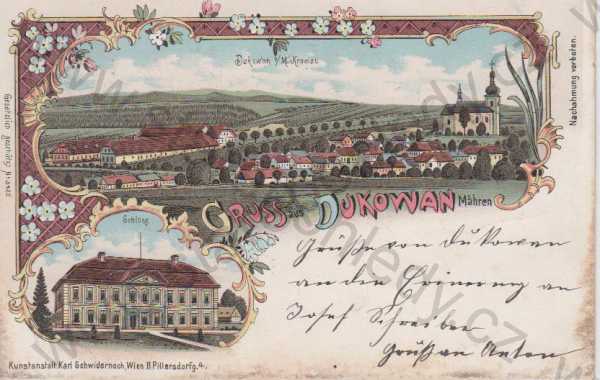 Dukowan b/M.-Kromau.
Nachahmung verboten.
Gesetzlich geschützt
GRUSS aus DUKOWAN Mähren
Schloss
Grüsse von Dukowan
an die Erinerung an
Josef Schreiber
Grüßt Anton
Kunstanstalt Karl Schwidernoch, Wien II. Pillersdorfg. 4.